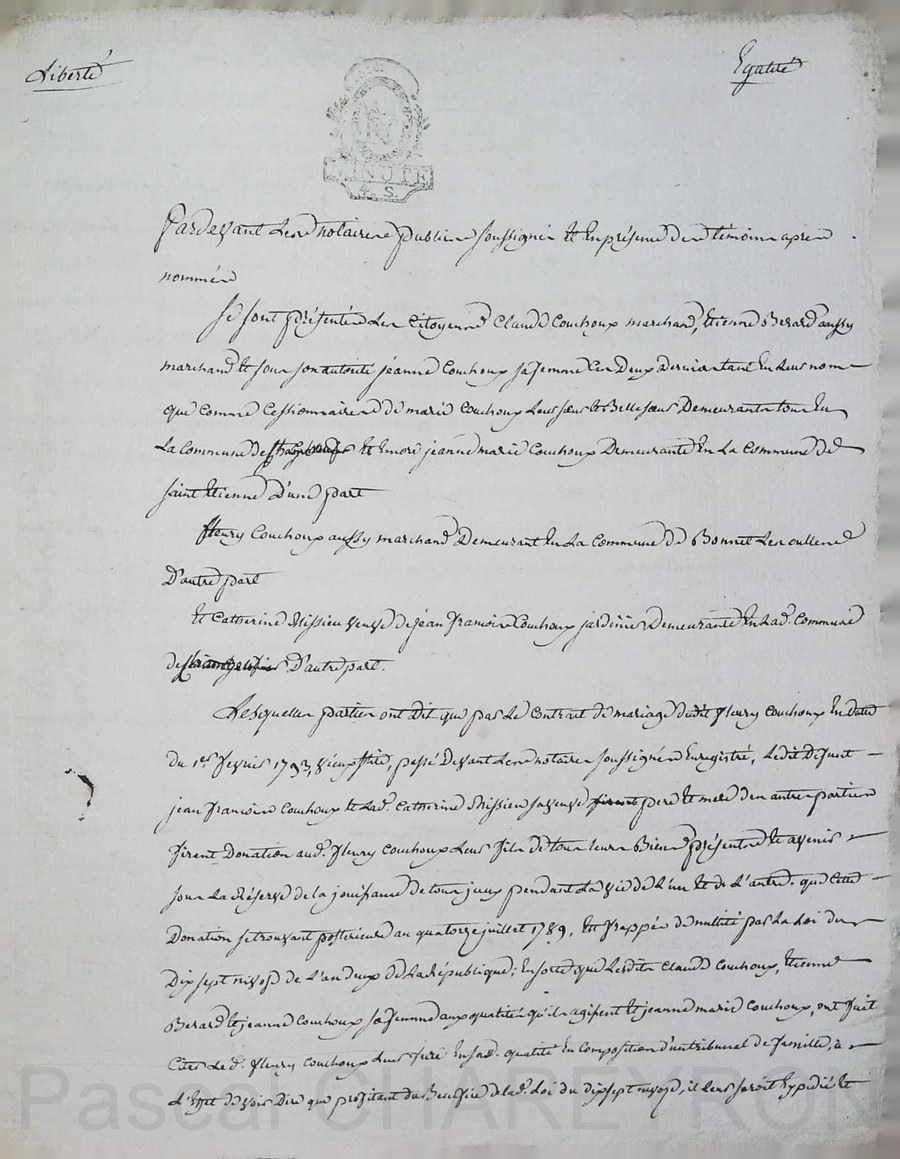 Liberté
Egalité
MINUTE
4. S.
Pardevant Les Notaires publics soussignés Et En présence des témoins aprés
nommés
Se sont présentés Les Citoyens Claude Couchoux marchand, Etienne Berard aussy
marchand Et sous son autorité jeanne Couchoux sa femme Ces Deux Derniers tant En Leurs noms
que comme Cessionnaires de marie Couchoux Leur sœur Et Belle sœur Demeurants tous En
La Commune de Et Encore jeanne marie Couchoux Demeurante En La Commune de
saint Etienne D'une part
fleury Couchoux aussy marchand Demeurant En La Commune de Bonnet Les oulles
D'autre part
Et Catherine veuve de jean françois Couchoux jardinier Demeurante En Lad. Commune
de D'autre part.
Lesquelles parties ont dit que par Le Contrait de mariage dudit fleury Couchoux En date
du 1er fevrier 1793, vieux stile, passé Devant Les notaires soussignés Enregistré, Ledit Defunt
jean françois Couchoux Et Lad. Catherine sa veuve pere Et mere des autres parties
firent Donation aud. fleury Couchoux Leur fils de tous leurs Biens présents Et avenir
sous La Réserve de la jouissance de tous jceux pendant La vie de L'un Et de L'autre. que Cette
Donation se trouvant postérieure au quatorze juillet 1789, Est frappée de nullité par La Loi du
Dix sept nivose de L'an deux de La République; En sorte que Lesdits Claude Couchoux, Etienne
Berard Et jeanne Couchoux sa femme aux qualités qu'ils agissent Et jeanne marie Couchoux, ont fait
Citer Le d. fleury Couchoux Leur frere En sad. qualité En composition d'un tribunal de famille, à
L'Effet de voir Dire que profitant du Benefice de lad. Loi du dix sept nivose, il leur seroit Expedié Et
Pascal CHAREYRON